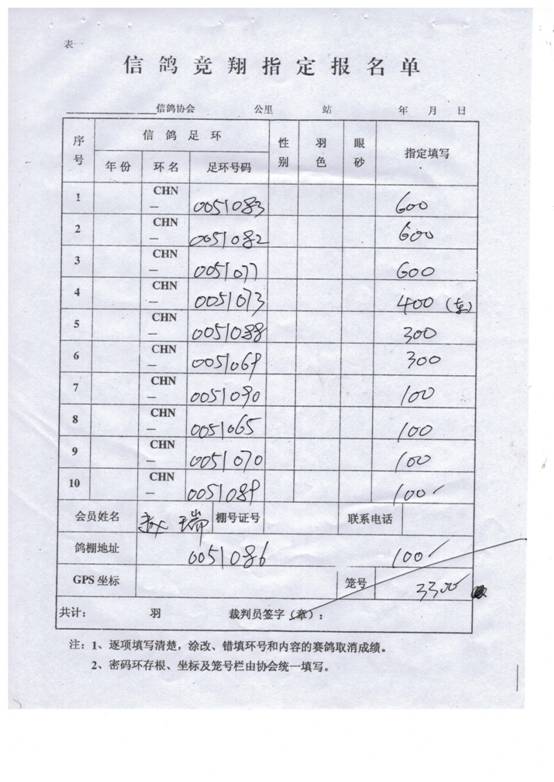 表一
信鸽竞翔指定报名单
信鸽协会 公里 站 年 月 日
序号 信鸽足环 性别 羽色 眼砂 指定填写
年份 环名 足环号码
1 CHN — 0051083 600
2 CHN — 0051082 600
3 CHN — 0051077 600
4 CHN — 0051073 400
5 CHN — 0051088 300
6 CHN — 0051069 300
7 CHN — 0051090 100
8 CHN — 0051065 100
9 CHN — 0051070 100
10 CHN — 0051089 100
会员姓名 赵瑞 棚号证号 联系电话
鸽棚地址 0051086 100
GPS 坐标 笼号 3300
共计: 羽 裁判员签字(章):
注:1、逐项填写清楚,涂改、错填环号和内容的赛鸽取消成绩。
2、密码环存根、坐标及笼号栏由协会统一填写。